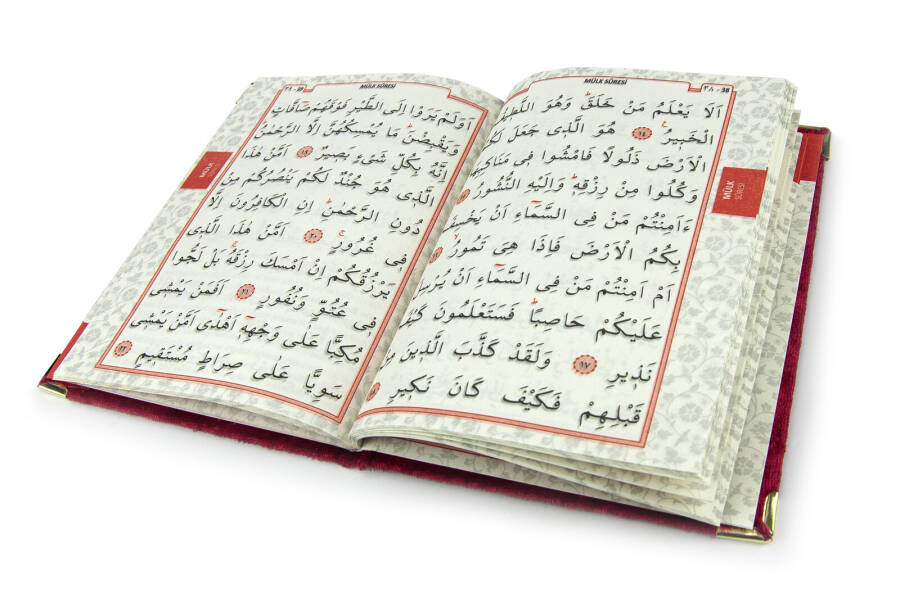 MÜLK SÛRESİ
٣٨ - 38
اَلَا يَعْلَمُ مَنْ خَلَقَۜ وَهُوَ
الْخَب۪يرُ۟ ﴿١٤﴾ هُوَ الَّذ۪ي جَعَلَ
الْاَرْضَ ذَلُولًا فَامْشُوا ف۪ي مَنَاكِبِهَا
وَكُلُوا مِنْ رِزْقِه۪ۜ وَاِلَيْهِ النُّشُورُ
ءَاَمِنْتُمْ مَنْ فِي السَّمَٓاءِ اَنْ يَخْسِفَ
بِكُمُ الْاَرْضَ فَاِذَا هِيَ تَمُورُۙ
اَمْ اَمِنْتُمْ مَنْ فِي السَّمَٓاءِ اَنْ يُرْسِلَ
عَلَيْكُمْ حَاصِبًاۜ فَسَتَعْلَمُونَ كَيْفَ
نَذ۪يرِ ﴿١٧﴾ وَلَقَدْ كَذَّبَ الَّذ۪ينَ مِنْ
قَبْلِهِمْ فَكَيْفَ كَانَ نَك۪يرِ
MÜLK
SÛRESİ
MÜLK SÛRESİ
اَوَلَمْ يَرَوْا اِلَى الطَّيْرِ فَوْقَهُمْ صَٓافَّاتٍ
وَيَقْبِضْنَۜ مَا يُمْسِكُهُنَّ اِلَّا الرَّحْمٰنُۜ
اِنَّهُ بِكُلِّ شَيْءٍ بَص۪يرٌ ﴿١٩﴾ اَمَّنْ هٰذَا
الَّذ۪ي هُوَ جُنْدٌ لَكُمْ يَنْصُرُكُمْ مِنْ
دُونِ الرَّحْمٰنِۜ اِنِ الْكَافِرُونَ اِلَّا
ف۪ي غُرُورٍۚ ﴿٢٠﴾ اَمَّنْ هٰذَا الَّذ۪ي
يَرْزُقُكُمْ اِنْ اَمْسَكَ رِزْقَهُۚ بَلْ لَجُّوا
ف۪ي عُتُوٍّ وَنُفُورٍ ﴿٢١﴾ اَفَمَنْ يَمْش۪ي
مُكِبًّا عَلٰى وَجْهِه۪ٓ اَهْدٰٓى اَمَّنْ يَمْش۪ي
سَوِيًّا عَلٰى صِرَاطٍ مُسْتَق۪يمٍ ﴿٢٢﴾
MÜLK